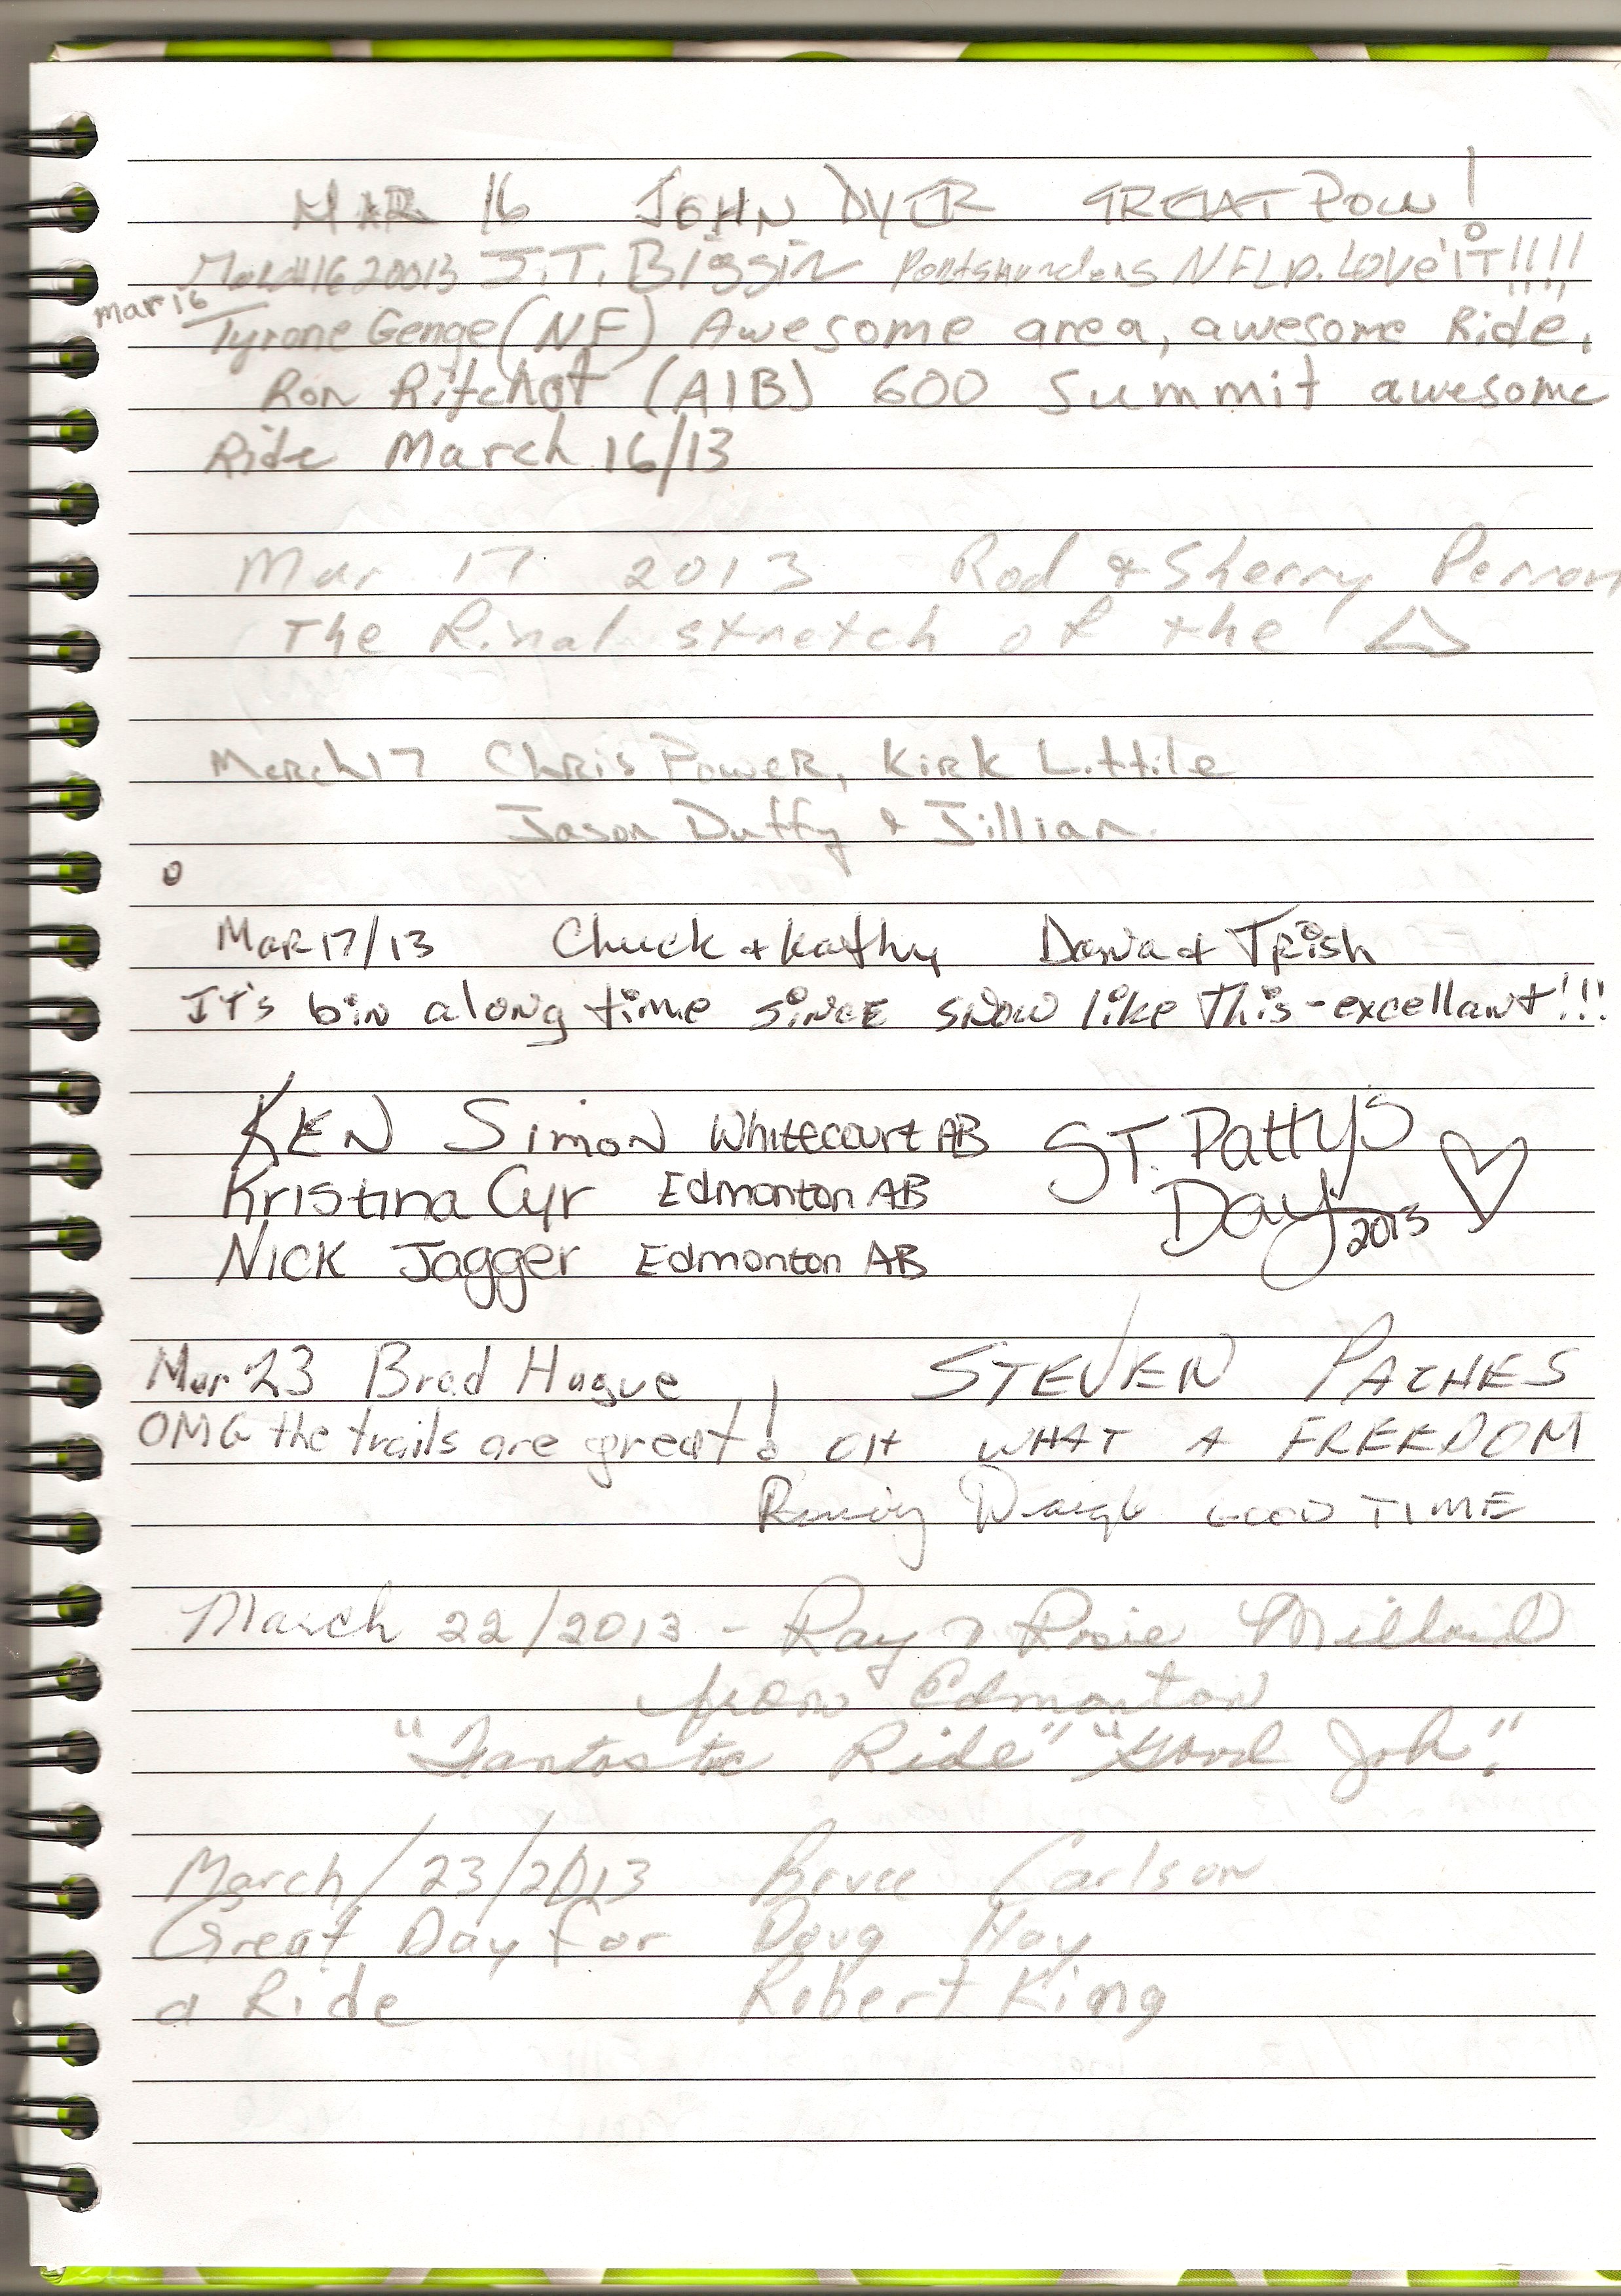 MAR 16 JOHN DYER GREAT POW!
March 16 20013 J.T. Biggin NFLD. Love IT!!!!
mar 16
Tyrone Genge (NF) Awesome area, awesome Ride,
Ron Ritchot (AIB) 600 Summit awesome
Ride March 16/13
Mar 17 2013 Rod & Sherry Perron
The Final stretch of the
March 17 Chris Power, Kirk Little
Jason Duffy & Jillian
Mar 17/13 Chuck & Kathy Dana & Trish
It's bin along time since snow like this - excellant!!!
KEN Simon Whitecourt AB ST. Pattys
Kristina Cyr Edmonton AB Day 2013
Nick Jagger Edmonton AB
Mar 23 Brad Hague STEVEN
OMG the trails are great! OH WHAT A FREEDOM
GOOD TIME
March 22/2013 - Ray & Rosie
from Edmonton
"Fantastic Ride" "Good Job".
March/23/2013 Bruce Carlson
Great Day for Doug Hay
a Ride Robert King